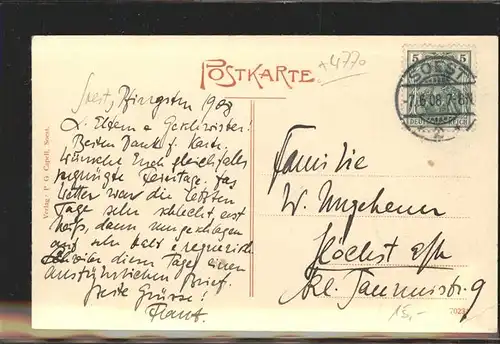 +4770
POSTKARTE
5 5
SOEST
-7.6.08.7-8V.
DEUTSCHES REICH
Soest, Pfingsten 1908
L. Eltern u Geschwister!
Besten Dank f. Karte,
wünsche Euch gleichfalls
vergnügte Feiertage. Das
Wetter war die letzten
Tage sehr schlecht, erst
heiß, dann umgeschlagen
und sehr kalt u regnerisch.
Schreibe diesen Tage einen
ausführlichen Brief.
Beste Grüsse!
Franz.
Familie
W. Ungeheuer
Höchst a/M
Kl. Taunusstr. 9
Verlag: P. G. Capell, Soest.
15,-